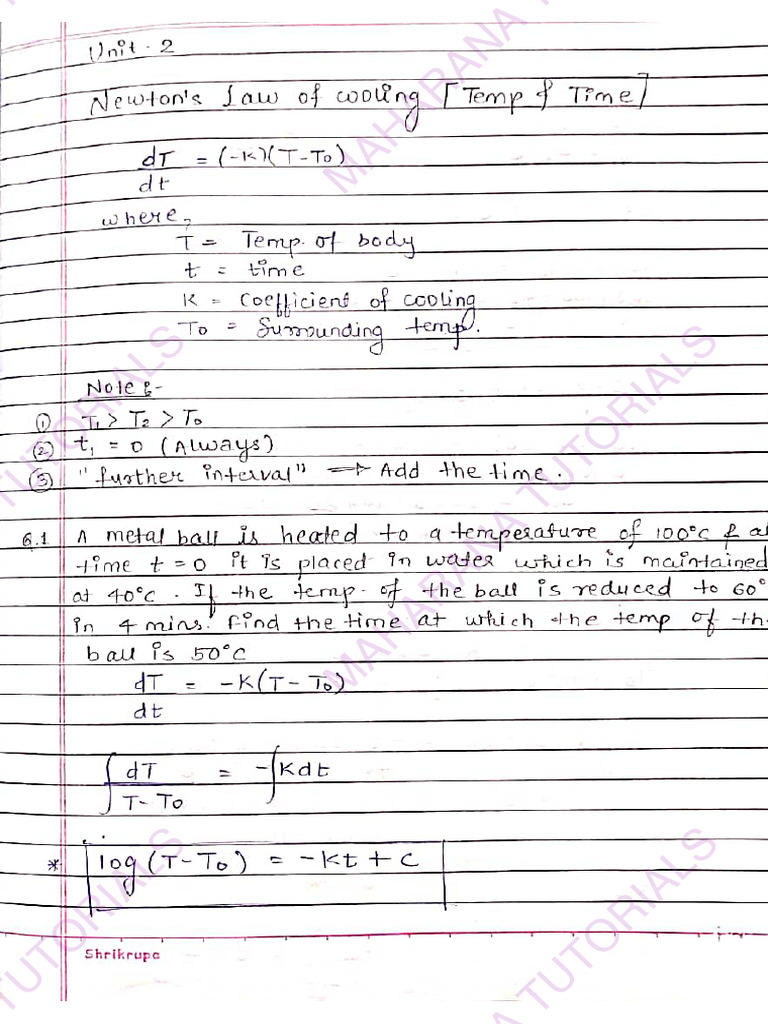 Unit - 2
Newton's Law of cooling [Temp & Time]
dT = (-K)(T-To)
dt
where,
T = Temp. of body
t = time
K = Coefficient of cooling
To = Surrounding temp.
Note :-
① T1 > T2 > To
② t1 = 0 (Always)
③ "further interval" => Add the time.
6.1 A metal ball is heated to a temperature of 100°C & at
time t = 0 it is placed in water which is maintained
at 40°C. If the temp. of the ball is reduced to 60°
in 4 mins. find the time at which the temp of th
ball is 50°C
dT = -K(T-To)
dt
∫ dT = -∫Kdt
T-To
* log (T-To) = -Kt + C
Shrikrupa
MAHARANA TUTORIALS
TUTORIALS
MAHARANA TUTORIALS
TUTORIALS
MAHARANA TUTORIALS